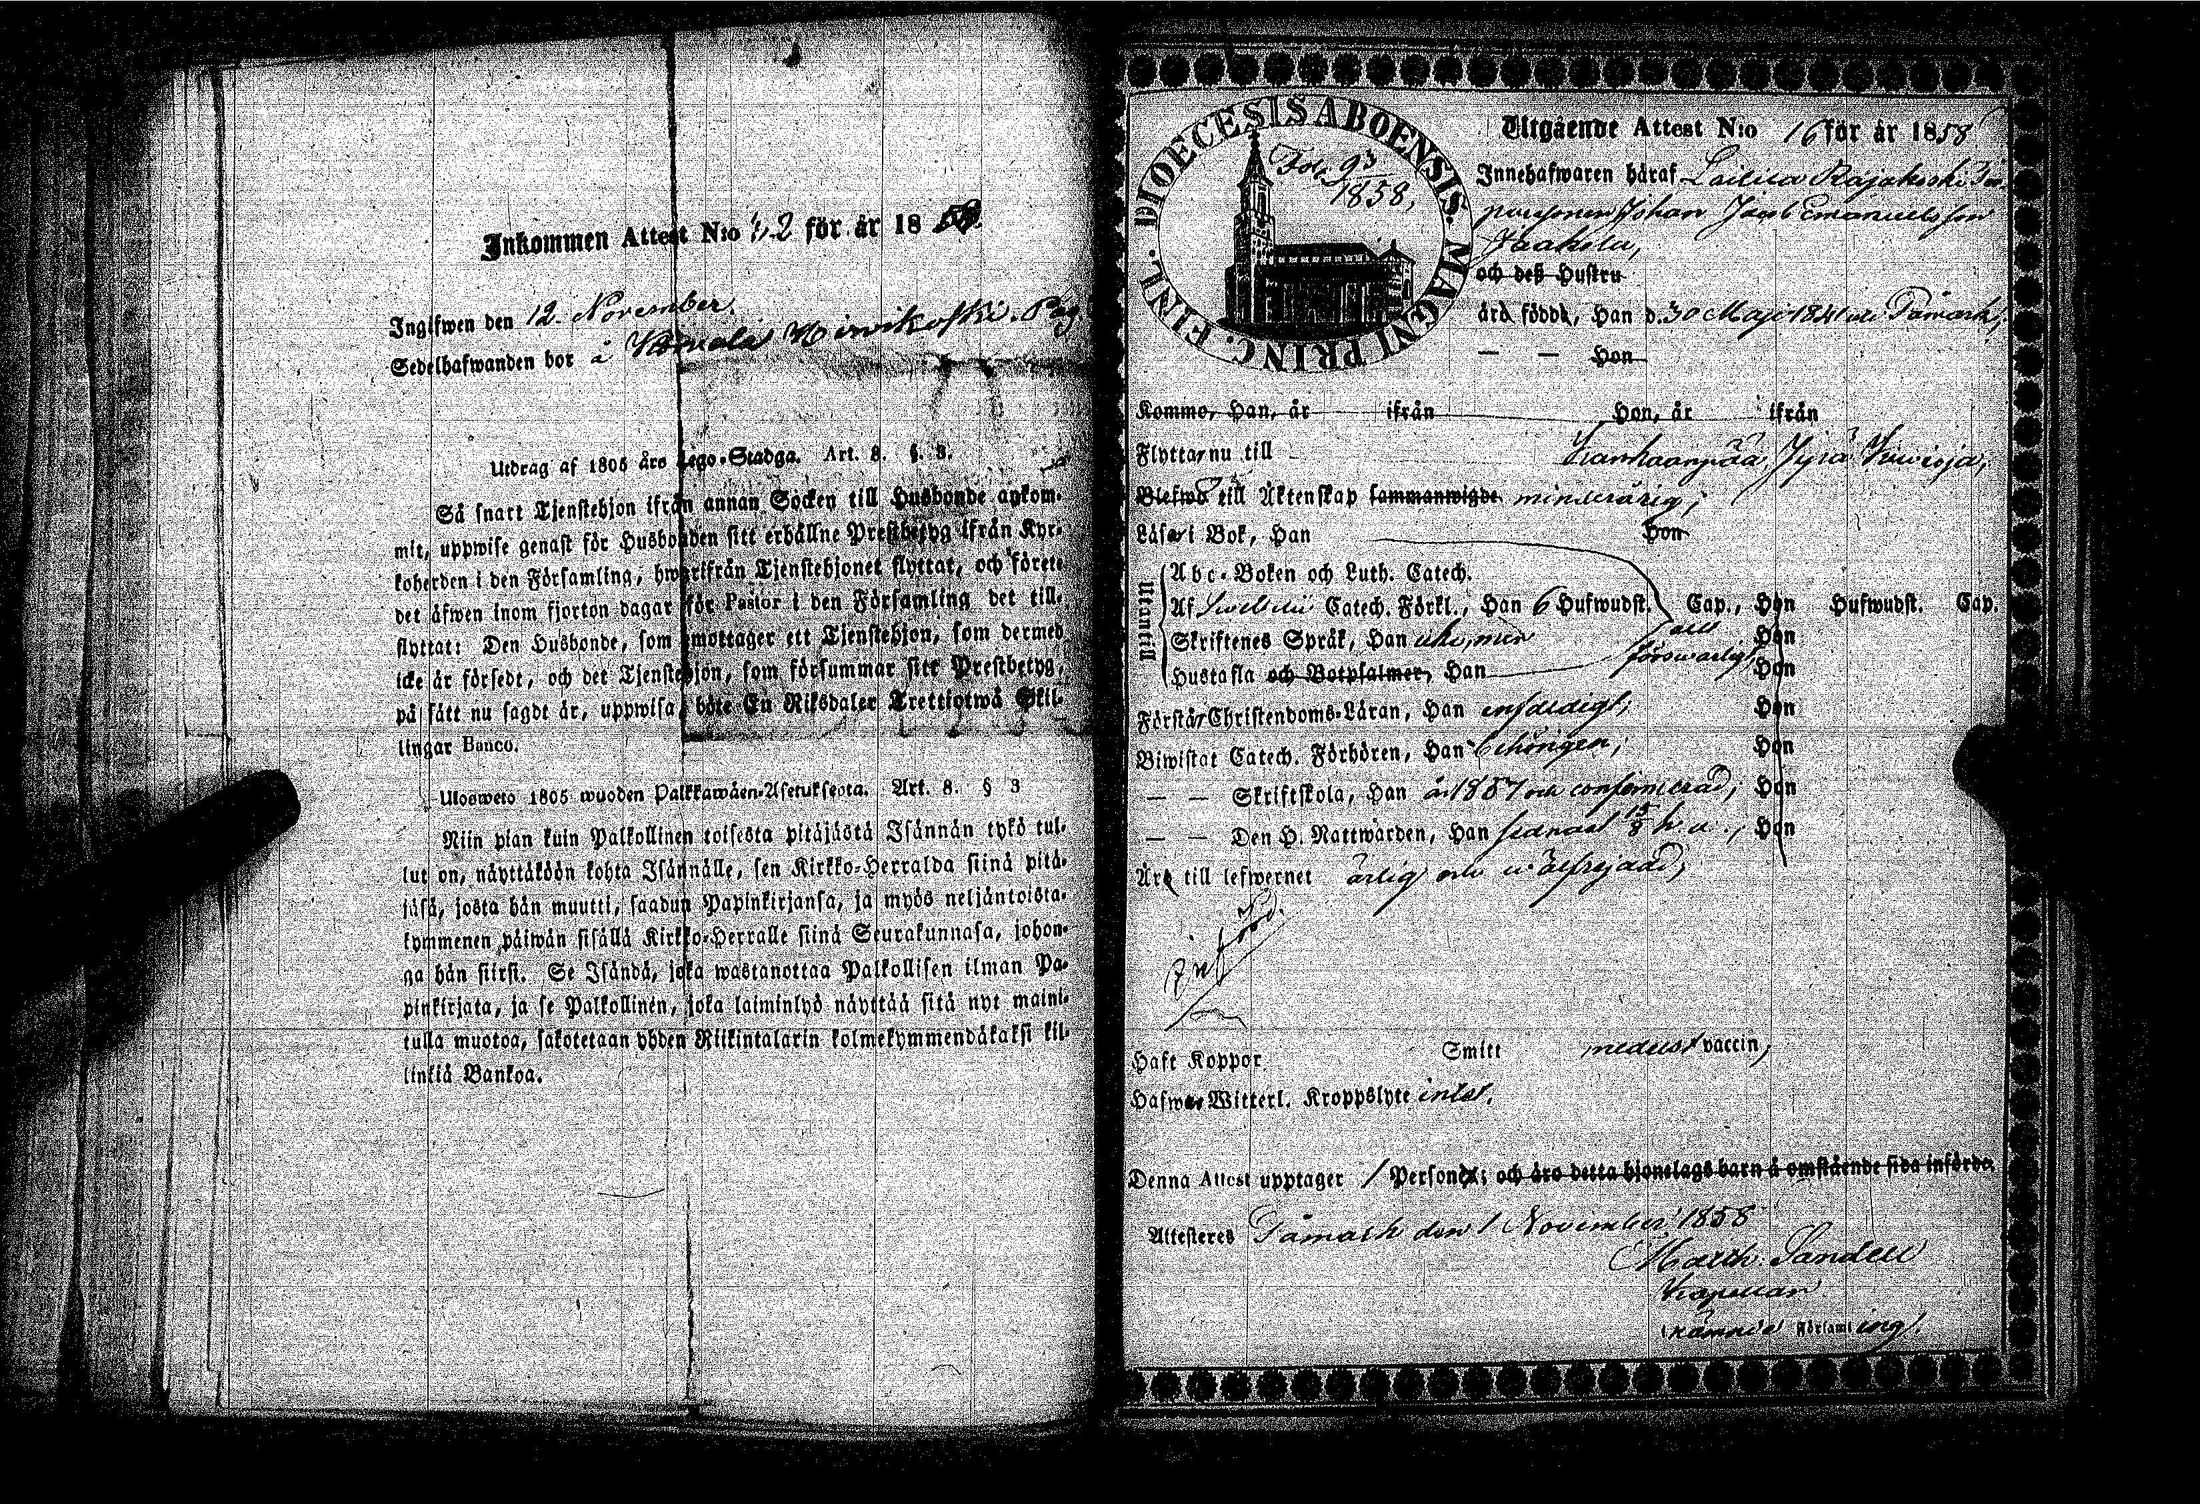 Inkommen Attest N:o 32 för år 1858
Ingifwen den 12. November.
Sedelhafwanden bor å
Utdrag af 1805 års Lego-Stadga. Art. 8. §. 3.
Så snart Tjenstehjon ifrån annan Socken till Husbonde ankom-
mit, uppwise genast för Husbonden sitt erhållne Prestbetyg ifrån Kyr-
koherden i den Församling, hwarifrån Tjenstehjonet flyttat, och förete
det äfwen inom fjorton dagar för Pastor i den Församling det till-
flyttat: Den Husbonde, som emottager ett Tjenstehjon, som dermed
icke är försedt, och det Tjenstehjon, som försummar sitt Prestbetyg,
på sätt nu sagdt är, uppwisa, böte En Riksdaler Trettiotwå Skil-
lingar Banco.
Ulosweto 1805 wuoden Palkkawäen-Asetuksesta. Art. 8. § 3
Niin pian kuin Palkollinen toisesta pitäjästä Isännän tykö tul-
lut on, näyttäköön kohta Isännälle, sen Kirkko-Herralda siinä pitä-
jäsä, josta hän muutti, saadun Papinkirjansa, ja myös neljäntoista-
kymmenen päiwän sisällä Kirkko-Herralle siinä Seurakunnasa, johon-
ga hän siirsi. Se Isändä, joka wastanottaa Palkollisen ilman Pa-
pinkirjata, ja se Palkollinen, joka laiminlyö näyttää sitä nyt maini-
tulla muotoa, sakotetaan yhden Riikintalarin kolmekymmendäkaksi kil-
linkiä Bankoa.
DIOECESIS ABOENSIS. MAGNI PRINC. FINL.
Fol. 93
1858,
Utgående Attest N:o 16 för år 1858
Innehafwaren häraf Laviia Rajakoski In-
Johan Jacob Emanuelsson
Jaakola,
och deß Hustru
ärö födde, Han d. 30 Maji 1841 i Påmark;
— — Hon
Kommo, Han, år ifrån Hon, år ifrån
Flytta nu till Kankaanpää, Jyrä
Blefwo till Äktenskap sammanwigde minderårig;
Läsa i Bok, Han Hon
Utantill
Abc-Boken och Luth. Catech.
Af Svebelii Catech. Förkl., Han 6 Hufwudst. Cap., Hon Hufwudst. Cap.
Skriftenes Språk, Han Hon
försvarligt,
Hustafla och Botpsalmer, Han Hon
Förstår Christendoms-Läran, Han enfaldigt; Hon
Biwistat Catech. Förhören, Han behörigen; Hon
— — Skriftskola, Han år 1857 och confirmerad; Hon
— — Den H. Nattwarden, Han sednast 15/8 h. a.; Hon
Äro till lefwernet ärlig och wälfrejdad;
Haft Koppor Smitt medelst vaccin;
Hafwa Witterl. Kroppslyte intet.
Denna Attest upptager 1 Personer; och äro detta hjonelags barn å omstående sida införde.
Attesteres Påmark den 1 November 1858
Math. Sandell
Kapellan
i nämnde Församling.